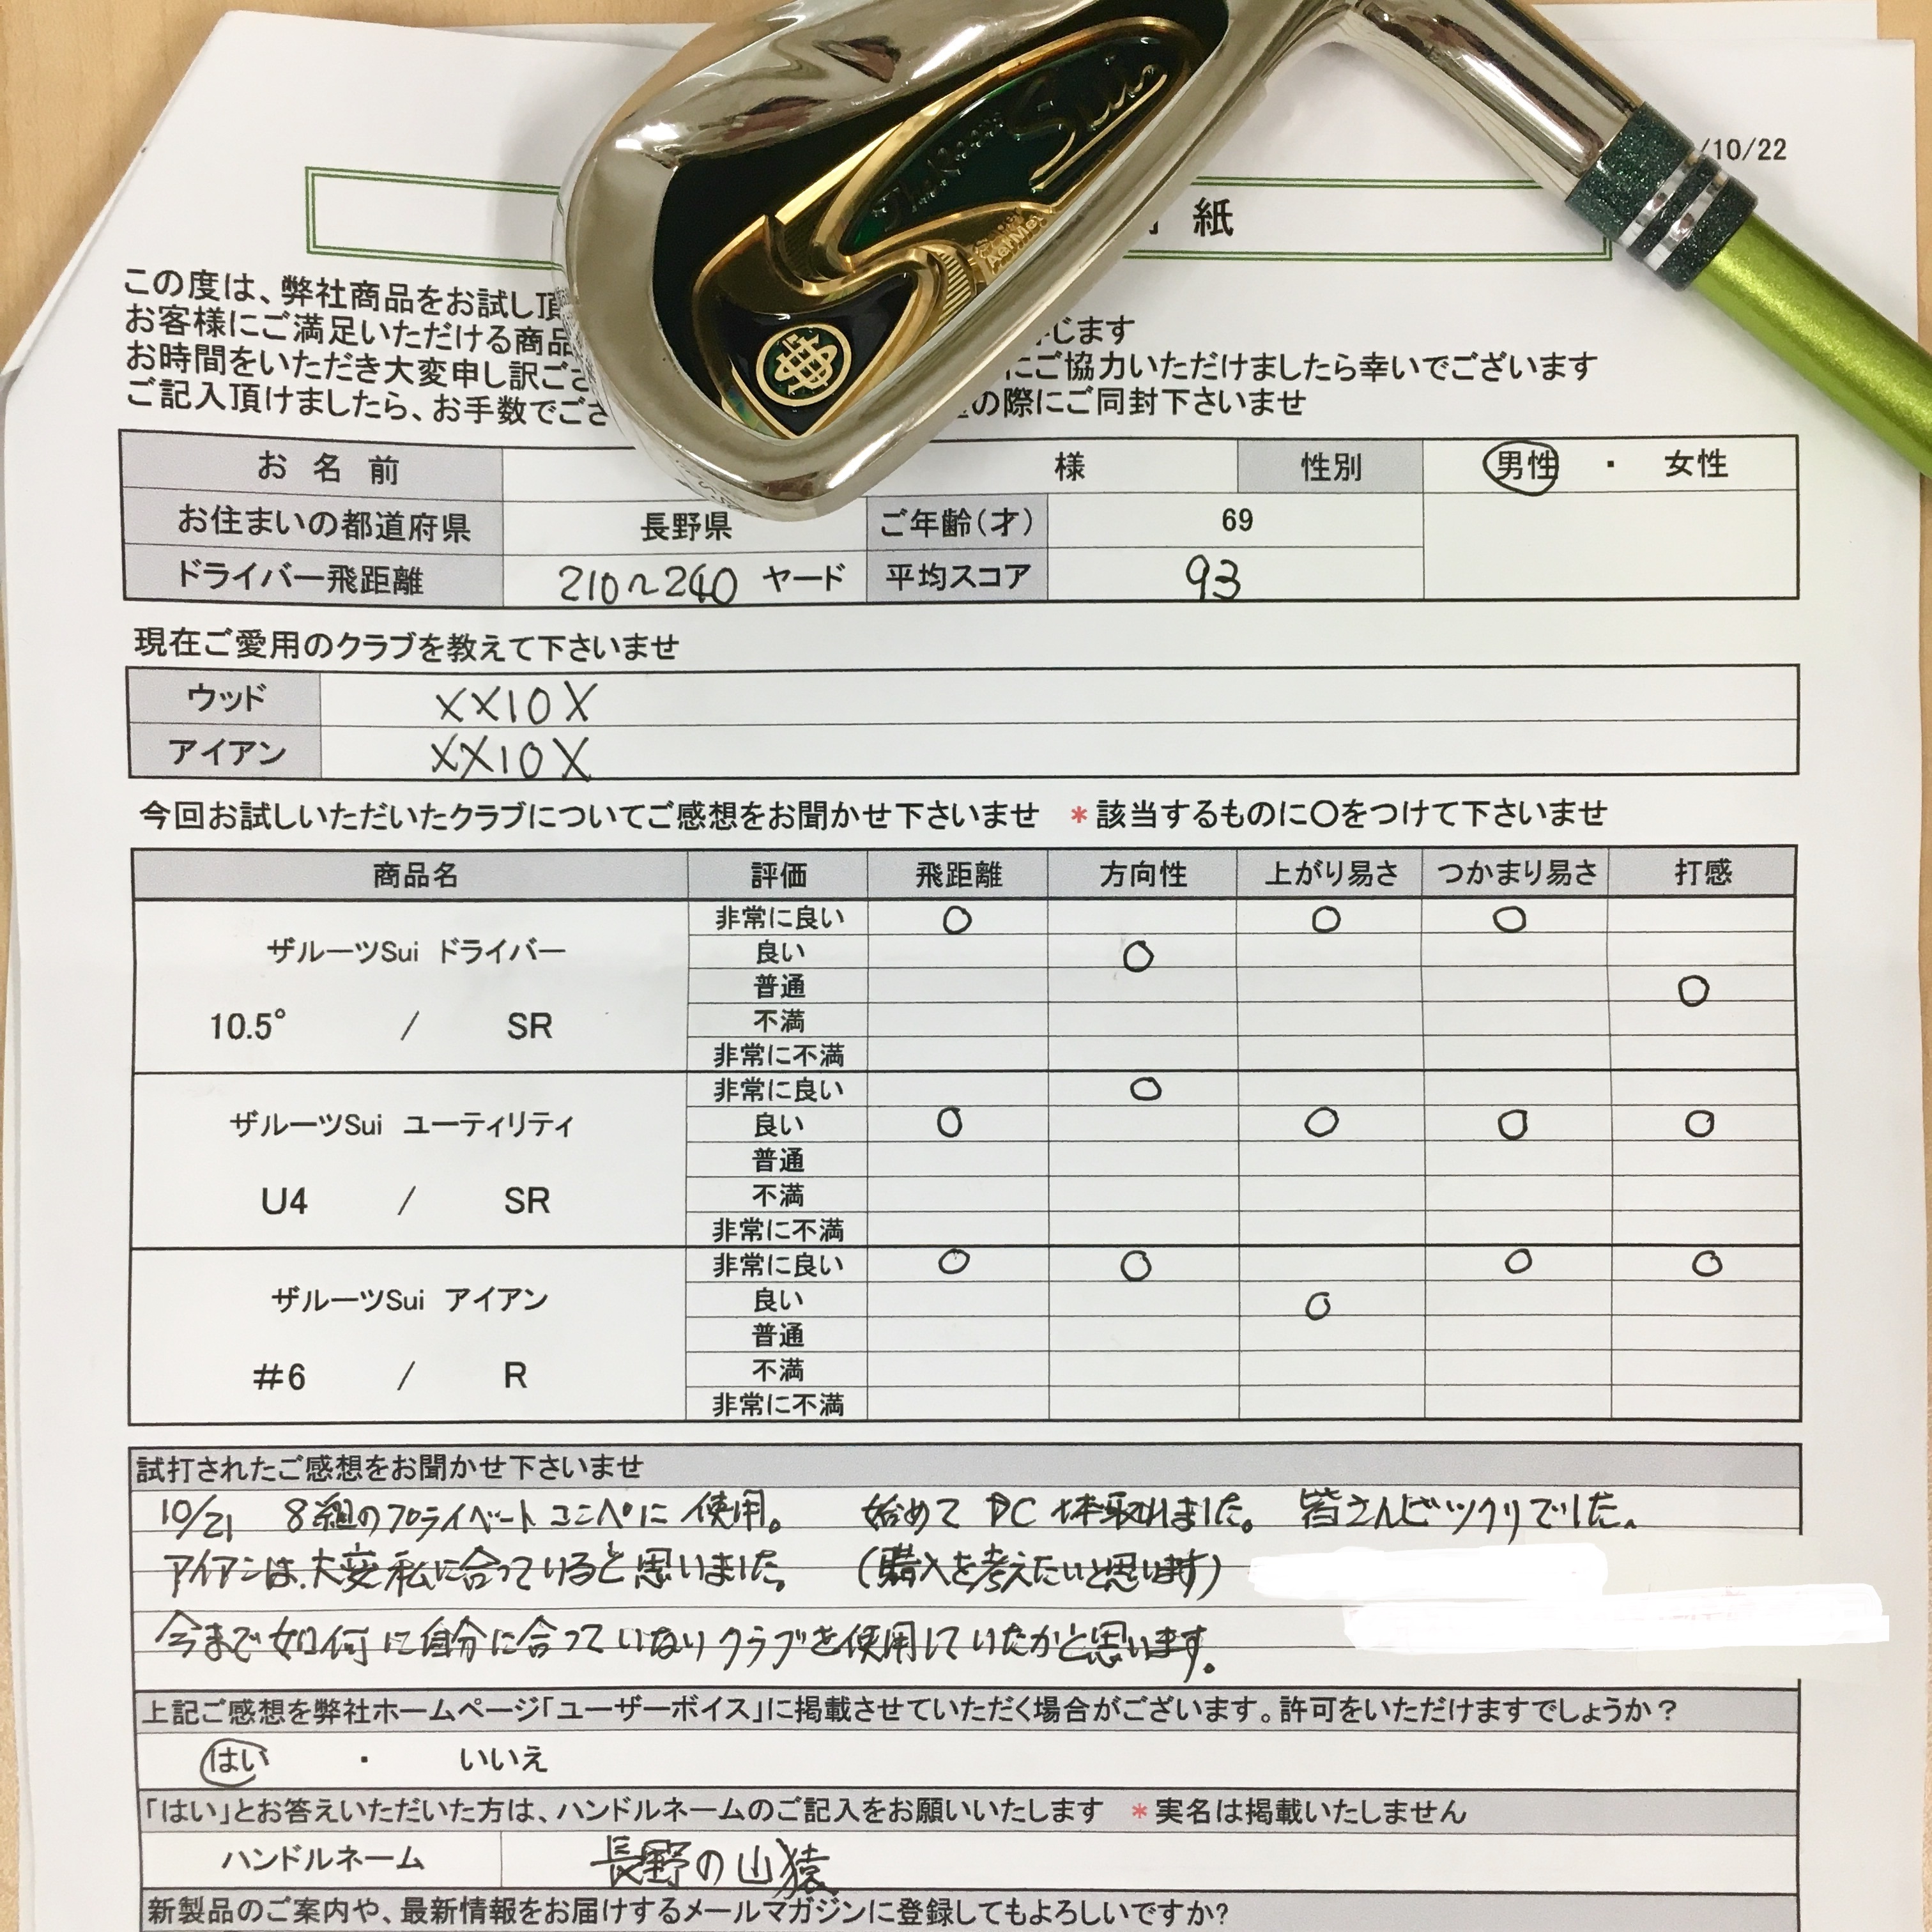 /10/22
紙
The Roots Sui
この度は、弊社商品をお試し頂
お客様にご満足いただける商品 じます
お時間をいただき大変申し訳ござ にご協力いただけましたら幸いでございます
ご記入頂けましたら、お手数でござ の際にご同封下さいませ
お名前 様 性別 男性 ・ 女性
お住まいの都道府県 長野県 ご年齢(才) 69
ドライバー飛距離 210~240 ヤード 平均スコア 93
現在ご愛用のクラブを教えて下さいませ
ウッド XX10X
アイアン XX10X
今回お試しいただいたクラブについてご感想をお聞かせ下さいませ *該当するものに〇をつけて下さいませ
商品名 評価 飛距離 方向性 上がり易さ つかまり易さ 打感
ザルーツSui ドライバー
10.5° / SR
非常に良い ○ ○ ○
良い ○
普通 ○
不満
非常に不満
ザルーツSui ユーティリティ
U4 / SR
非常に良い ○
良い ○ ○ ○ ○
普通
不満
非常に不満
ザルーツSui アイアン
#6 / R
非常に良い ○ ○ ○ ○
良い ○
普通
不満
非常に不満
試打されたご感想をお聞かせ下さいませ
10/21 8組のプライベートコンペに使用。 始めて DC 4本取れました。 皆さんビックリでした。
アイアンは、大変私に合っていると思いました。 (購入を考えたいと思います)
今まで如何に自分に合っていないクラブを使用していたかと思います。
上記ご感想を弊社ホームページ「ユーザーボイス」に掲載させていただく場合がございます。許可をいただけますでしょうか?
はい ・ いいえ
「はい」とお答えいただいた方は、ハンドルネームのご記入をお願いいたします *実名は掲載いたしません
ハンドルネーム 長野の山猿
新製品のご案内や、最新情報をお届けするメールマガジンに登録してもよろしいですか?